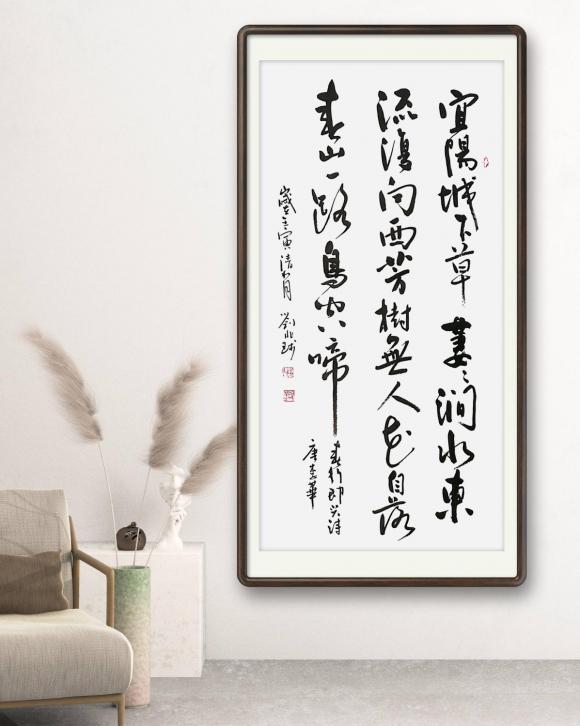 宜陽城下草萋々澗水東
流復向西芳樹無人花自落
春山一路鳥空啼
春行即兴诗
唐李華
歲在壬寅清和月
劉